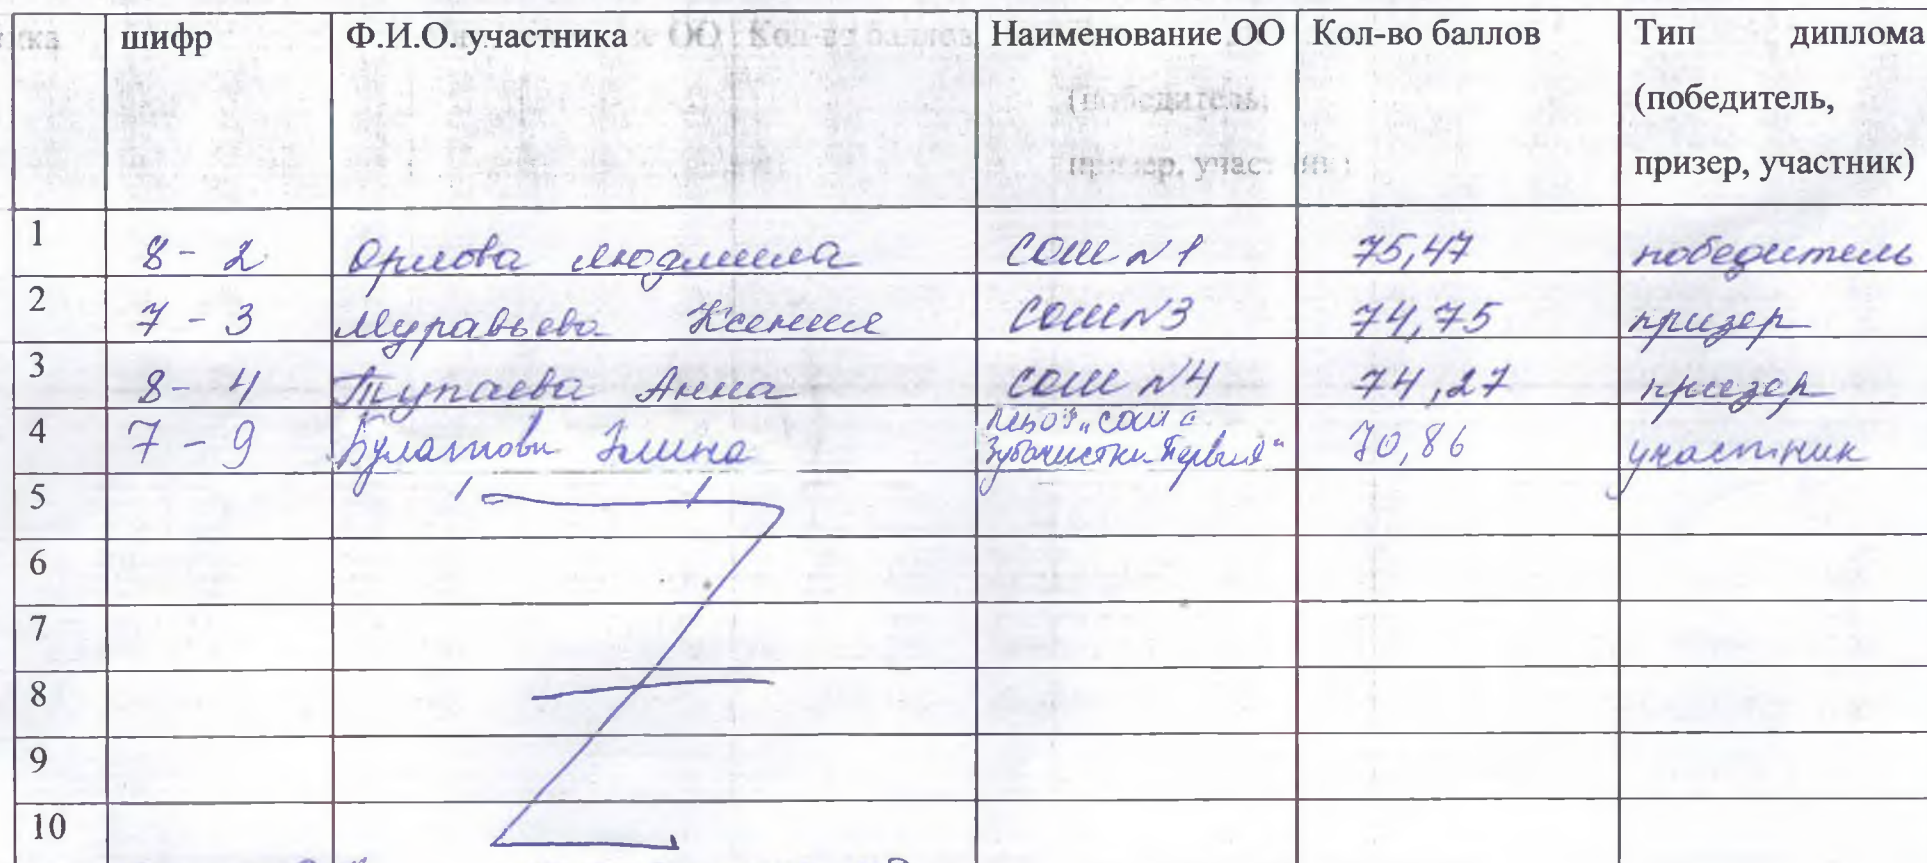 шифр Ф.И.О. участника Наименование ОО Кол-во баллов Тип диплома
(победитель,
призер, участник)
1 8-2 Орлова Людмила СОШ №1 75,47 победитель
2 7-3 Муравьева Ксения СОШ №3 74,75 призер
3 8-4 Тупаева Анна СОШ №4 74,27 призер
4 7-9 Булатова Элина МБОУ "СОШ с. Зубочистка Первая" 70,86 участник
5
6
7
8
9
10